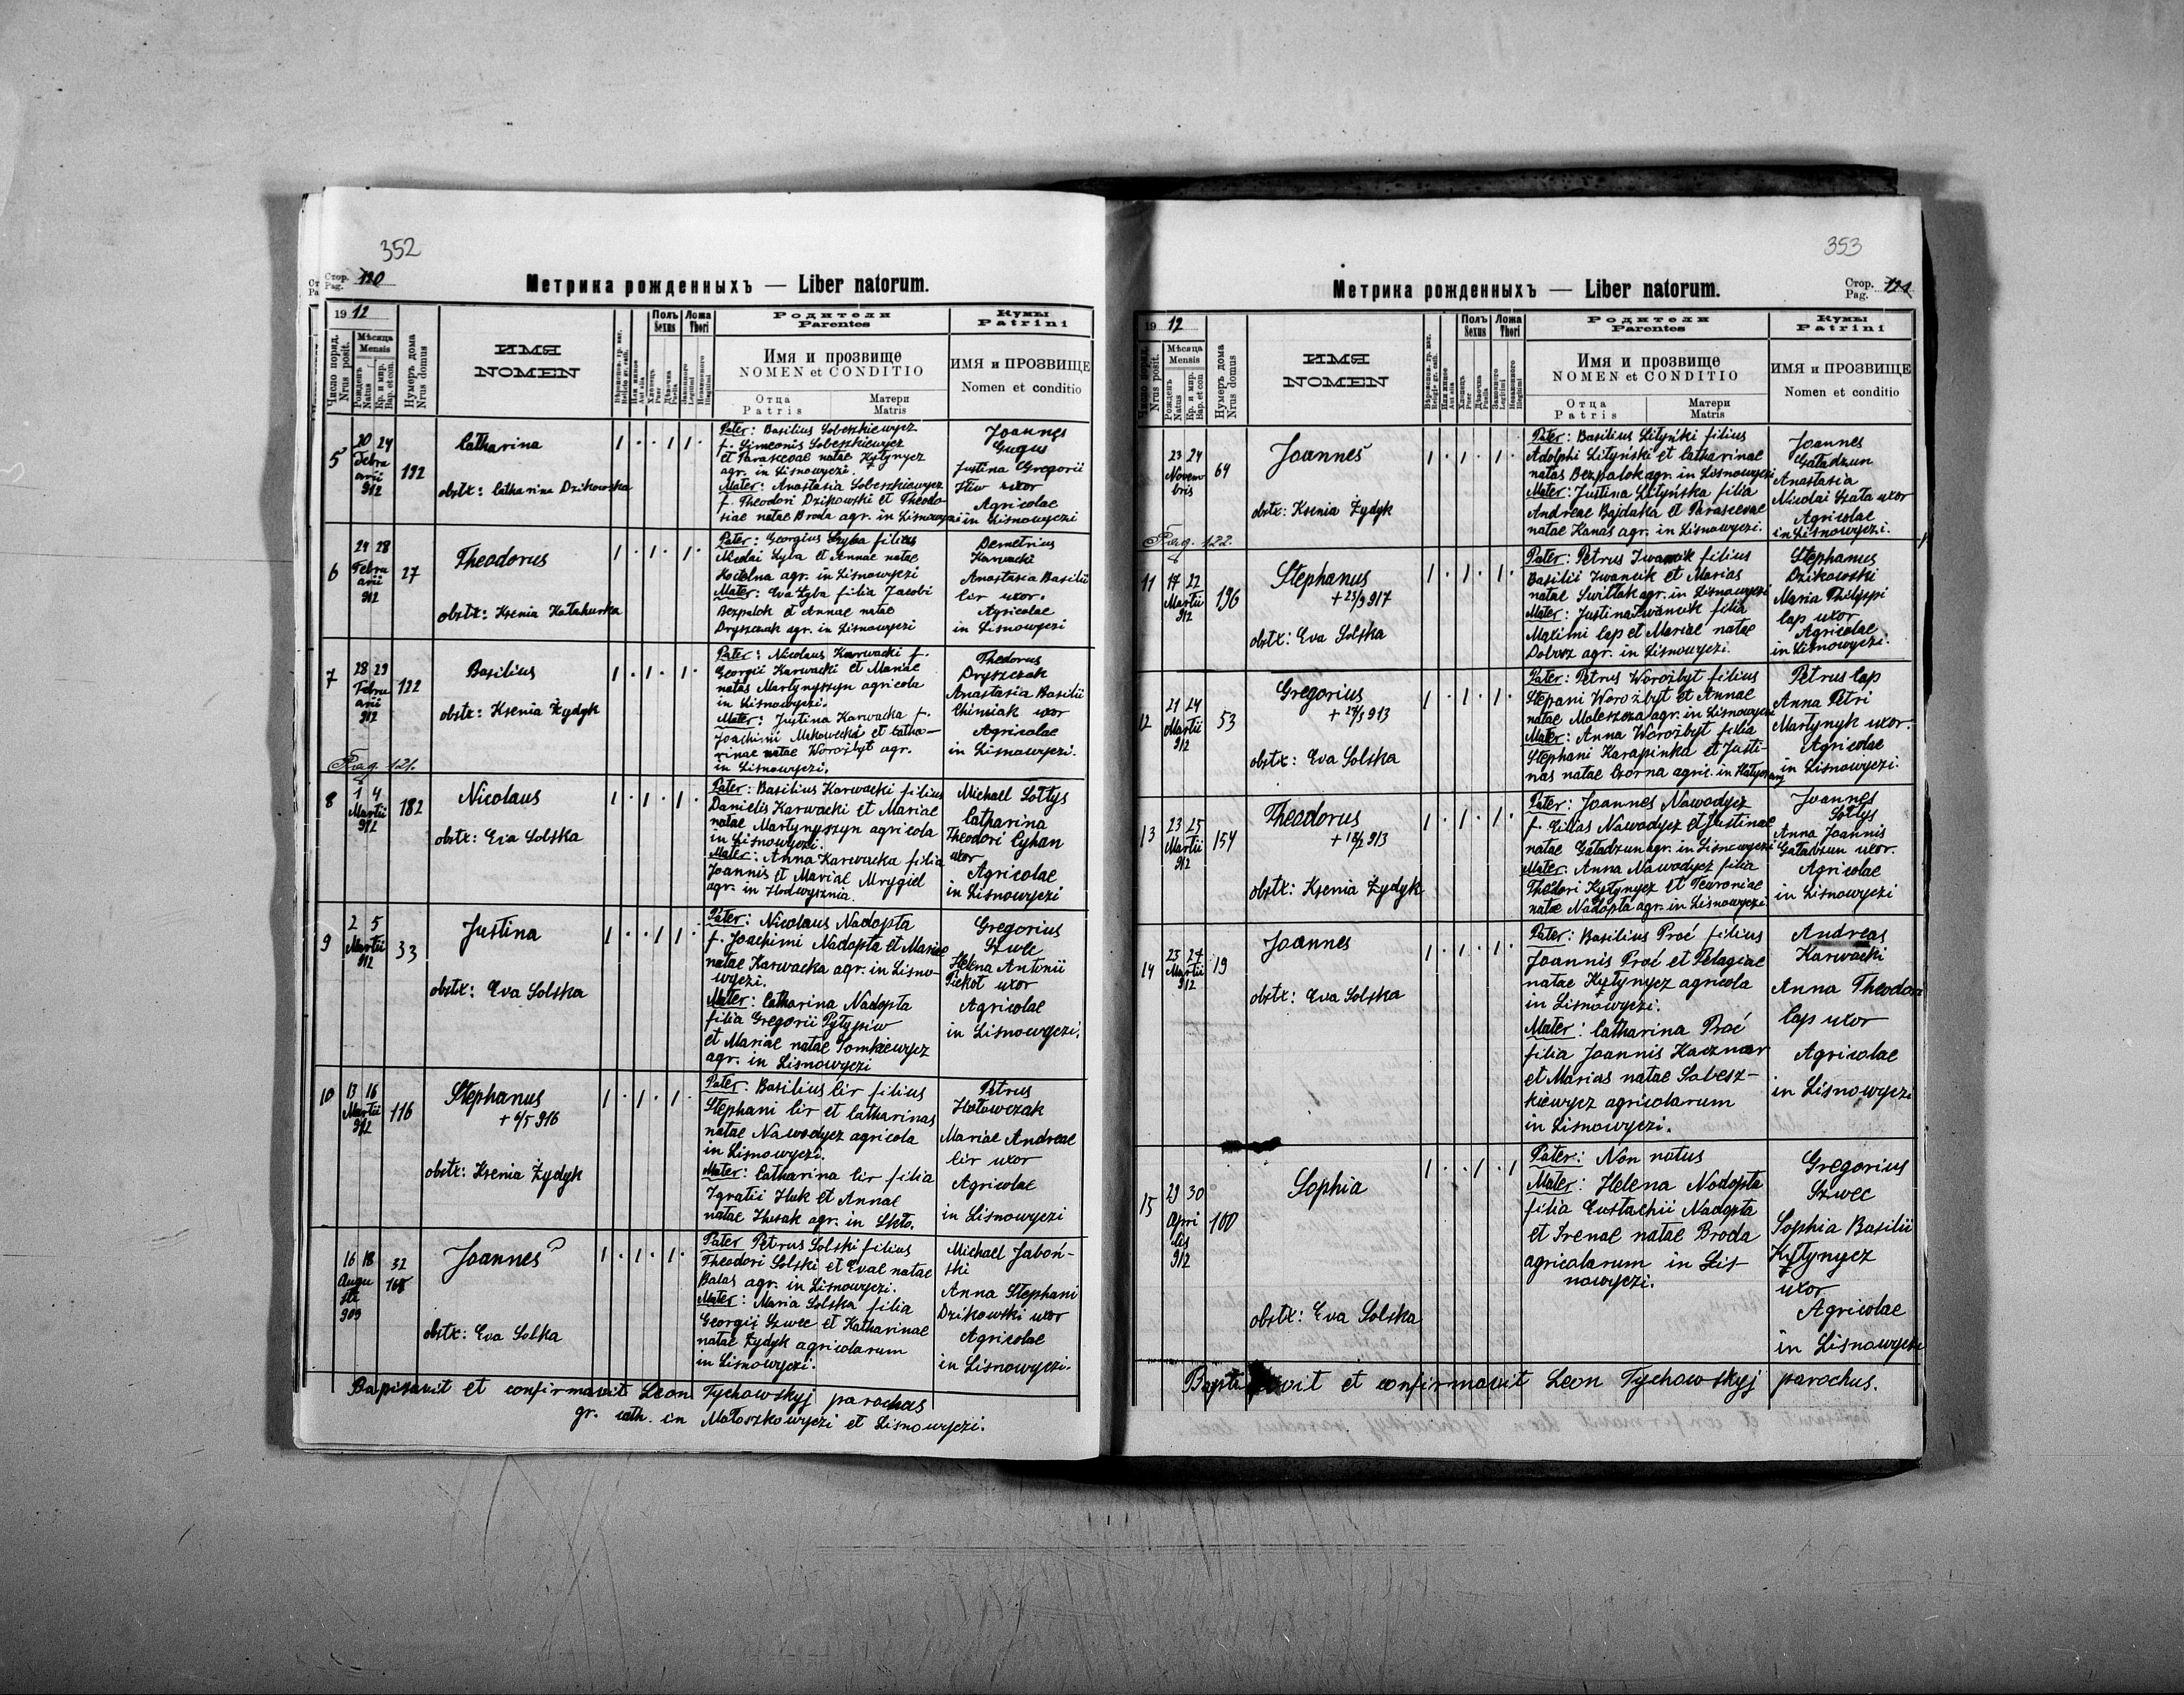 352
Стор. Pag. 120
Метрика рожденныхъ — Liber natorum.
1912
Число поряд. Nrus posit.
Мѣсяца Mensis
Рожденъ Natus
Кр. и мир. Bap. et con.
Нумеръ дома Nrus domus
ИМЯ
NOMEN
Полъ Sexus
Ложа Thori
Родители
Parentes
Имя и прозвище
NOMEN et CONDITIO
Отца Patris
Матери Matris
Кумы
Patrini
ИМЯ и ПРОЗВИЩЕ
Nomen et conditio
5
20 24
Febru
arii
912
132
Catharina
obstx: Catharina Dzikowska
Pater: Basilius Sobeszkiewycz
f. Simeonis Sobeszkiewycz
et Parascevae natae Kytynycz
agr. in Lisnowyczi.
Mater: Anastasia Sobeszkiewycz
f. Theodori Dzikowski et Theodo-
siae natae Broda agr. in Lisnowyczi
Joannes
Gugus
Justina Gregorii
Iliw uxor
Agricolae
in Lisnowyczi
6
24 28
Febru
arii
912
27
Theodorus
obstx: Ksenia
Pater: Georgius Zyba filius
Nicolai Zyba et Annae natae
agr. in Lisnowyczi
Mater: Eva Zyba filia Jacobi
Bezpalok et Annae natae
Dryszczak agr. in Lisnowyczi
Demetrius
Karwacki
Anastasia Basilii
Cir uxor.
Agricolae
in Lisnowyczi
7
28 29
Febru
arii
912
122
Basilius
obstx: Ksenia Żydyk
Pater: Nicolaus Karwacki f.
Georgii Karwacki et Mariae
natae Martynyszyn agricola
in Lisnowyczi.
Mater: Justina Karwacka f.
Joachimi et Catha-
rinae natae Worożbyt agr.
in Lisnowyczi.
Theodorus
Dryszczak
Anastasia Basilii
Chimiak uxor
Agricolae
in Lisnowyczi.
Pag. 121.
8
1 4
Martii
912
182
Nicolaus
obstx: Eva Solska
Pater: Basilius Karwacki filius
Danielis Karwacki et Mariae
natae Martynyszyn agricola
in Lisnowyczi.
Mater: Anna Karwacka filia
Joannis et Mariae Mrygiel
agr. in Hodwysznia.
Michael Sołtys
Catharina
Theodori Cyhan
uxor
Agricolae
in Lisnowyczi
9
2 5
Martii
912
33
Justina
obstx: Eva Solska
Pater: Nicolaus Nadopta
f. Joachimi Nadopta et Mariae
natae Karwacka agr. in Lisno-
wyczi.
Mater: Catharina Nadopta
filia Gregorii Pyłypiw
et Mariae natae Tomkiewycz
agr. in Lisnowyczi
Gregorius
Szwec
Helena Antonii
Piekot uxor
Agricolae
in Lisnowyczi.
10
13 16
Martii
912
116
Stephanus
+ 6/5 916
obstx: Ksenia Żydyk
Pater: Basilius Cir filius
Stephani Cir et Catharinae
natae Nawodycz agricola
in Lisnowyczi.
Mater: Catharina Cir filia
Ignatii Huk et Annae
natae Husak agr. in
Petrus
Hołowczak
Mariae Andreae
Cir uxor
Agricolae
in Lisnowyczi
16 18
Augu
sti
909
32
Joannes
obstx: Eva Solka
Pater Petrus Solski filius
Theodori Solski et Evae natae
Balas agr. in Lisnowyczi.
Mater: Maria Solska filia
Georgii Szwec et Katharinae
natae Żydyk agricolarum
in Lisnowyczi.
Michael Jaboń-
ski
Anna Stephani
Dzikowski uxor
Agricolae
in Lisnowyczi.
Baptisavit et confirmavit Leon Tychowskyj parochus
gr. cath. in Małoszkowyczi et Lisnowyczi.
353
Стор. Pag. 121
Метрика рожденныхъ — Liber natorum.
1912
Число поряд. Nrus posit.
Мѣсяца Mensis
Рожденъ Natus
Кр. и мир. Bap. et con
Нумеръ дома Nrus domus
ИМЯ
NOMEN
Полъ Sexus
Ложа Thori
Родители
Parentes
Имя и прозвище
NOMEN et CONDITIO
Отца Patris
Матери Matris
Кумы
Patrini
ИМЯ и ПРОЗВИЩЕ
Nomen et conditio
23 24
Novem
bris
64
Joannes
obstx: Ksenia Żydyk
Pater: Basilius Lityński filius
Adolphi Lityński et Catharinae
natae Bezpalok agr. in Lisnowyczi
Mater: Justina Lityńska filia
Andreae Bajdała et Parascevae
natae Kanas agr. in Lisnowyczi.
Joannes
Gaładzun
Anastasia
Nicolai Szata uxor
Agricolae
in Lisnowyczi.
Pag. 122.
11
17 22
Martii
912
196
Stephanus
+ 23/9 917
obstx: Eva Solska
Pater: Petrus Iwancik filius
Basilii Iwancik et Mariae
natae Switłak agr. in Lisnowyczi
Mater: Justina Iwancik filia
Maximi Cap et Mariae natae
Dobosz agr. in Lisnowyczi.
Stephanus
Dzikowski
Maria Philippi
Cap uxor
Agricolae
in Lisnowyczi.
12
21 24
Martii
912
53
Gregorius
+ 27/3 913
obstx: Eva Solska
Pater: Petrus Worożbyt filius
Stepani Worożbyt et Annae
natae Moleszcza agr. in Lisnowyczi
Mater: Anna Worożbyt filia
Stephani Karapinka et Justi-
nae natae Czorna agric. in
Petrus Cap
Anna Petri
Martynyk uxor.
Agricolae
in Lisnowyczi.
13
23 25
Martii
912
154
Theodorus
+ 18/2 913
obstx: Ksenia Żydyk
Pater: Joannes Nawodycz
f. Eliae Nawodycz et Justinae
natae Gaładzun agr. in Lisnowyczi
Mater: Anna Nawodycz filia
Theodori Kytynycz et Tewroniae
natae Nadopta agr. in Lisnowyczi
Joannes
Sołtys
Anna Joannis
Gaładzun uxor.
Agricolae
in Lisnowyczi
14
25 27
Martii
912
19
Joannes
obstx: Eva Solska
Pater: Basilius Proć filius
Joannis Proć et Pelagiae
natae Kytynycz agricola
in Lisnowyczi.
Mater: Catharina Proć
filia Joannis Kaczmar
et Mariae natae Sobesz-
kiewycz agricolarum
in Lisnowyczi.
Andreas
Karwacki
Anna Theodori
Cap uxor
Agricolae
in Lisnowyczi
15
29 30
Apri
lis
912
100
Sophia
obstx: Eva Solska
Pater: Non notus
Mater: Helena Nadopta
filia Eustachii Nadopta
et Irenae natae Broda
agricolarum in Lis-
nowyczi.
Gregorius
Szwec
Sophia Basilii
Kytynycz
uxor
Agricolae
in Lisnowyczi
et confirmavit Leon Tychowskyj parochus.